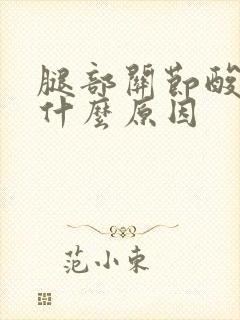 腿部關節酸
什麼原因
范小東